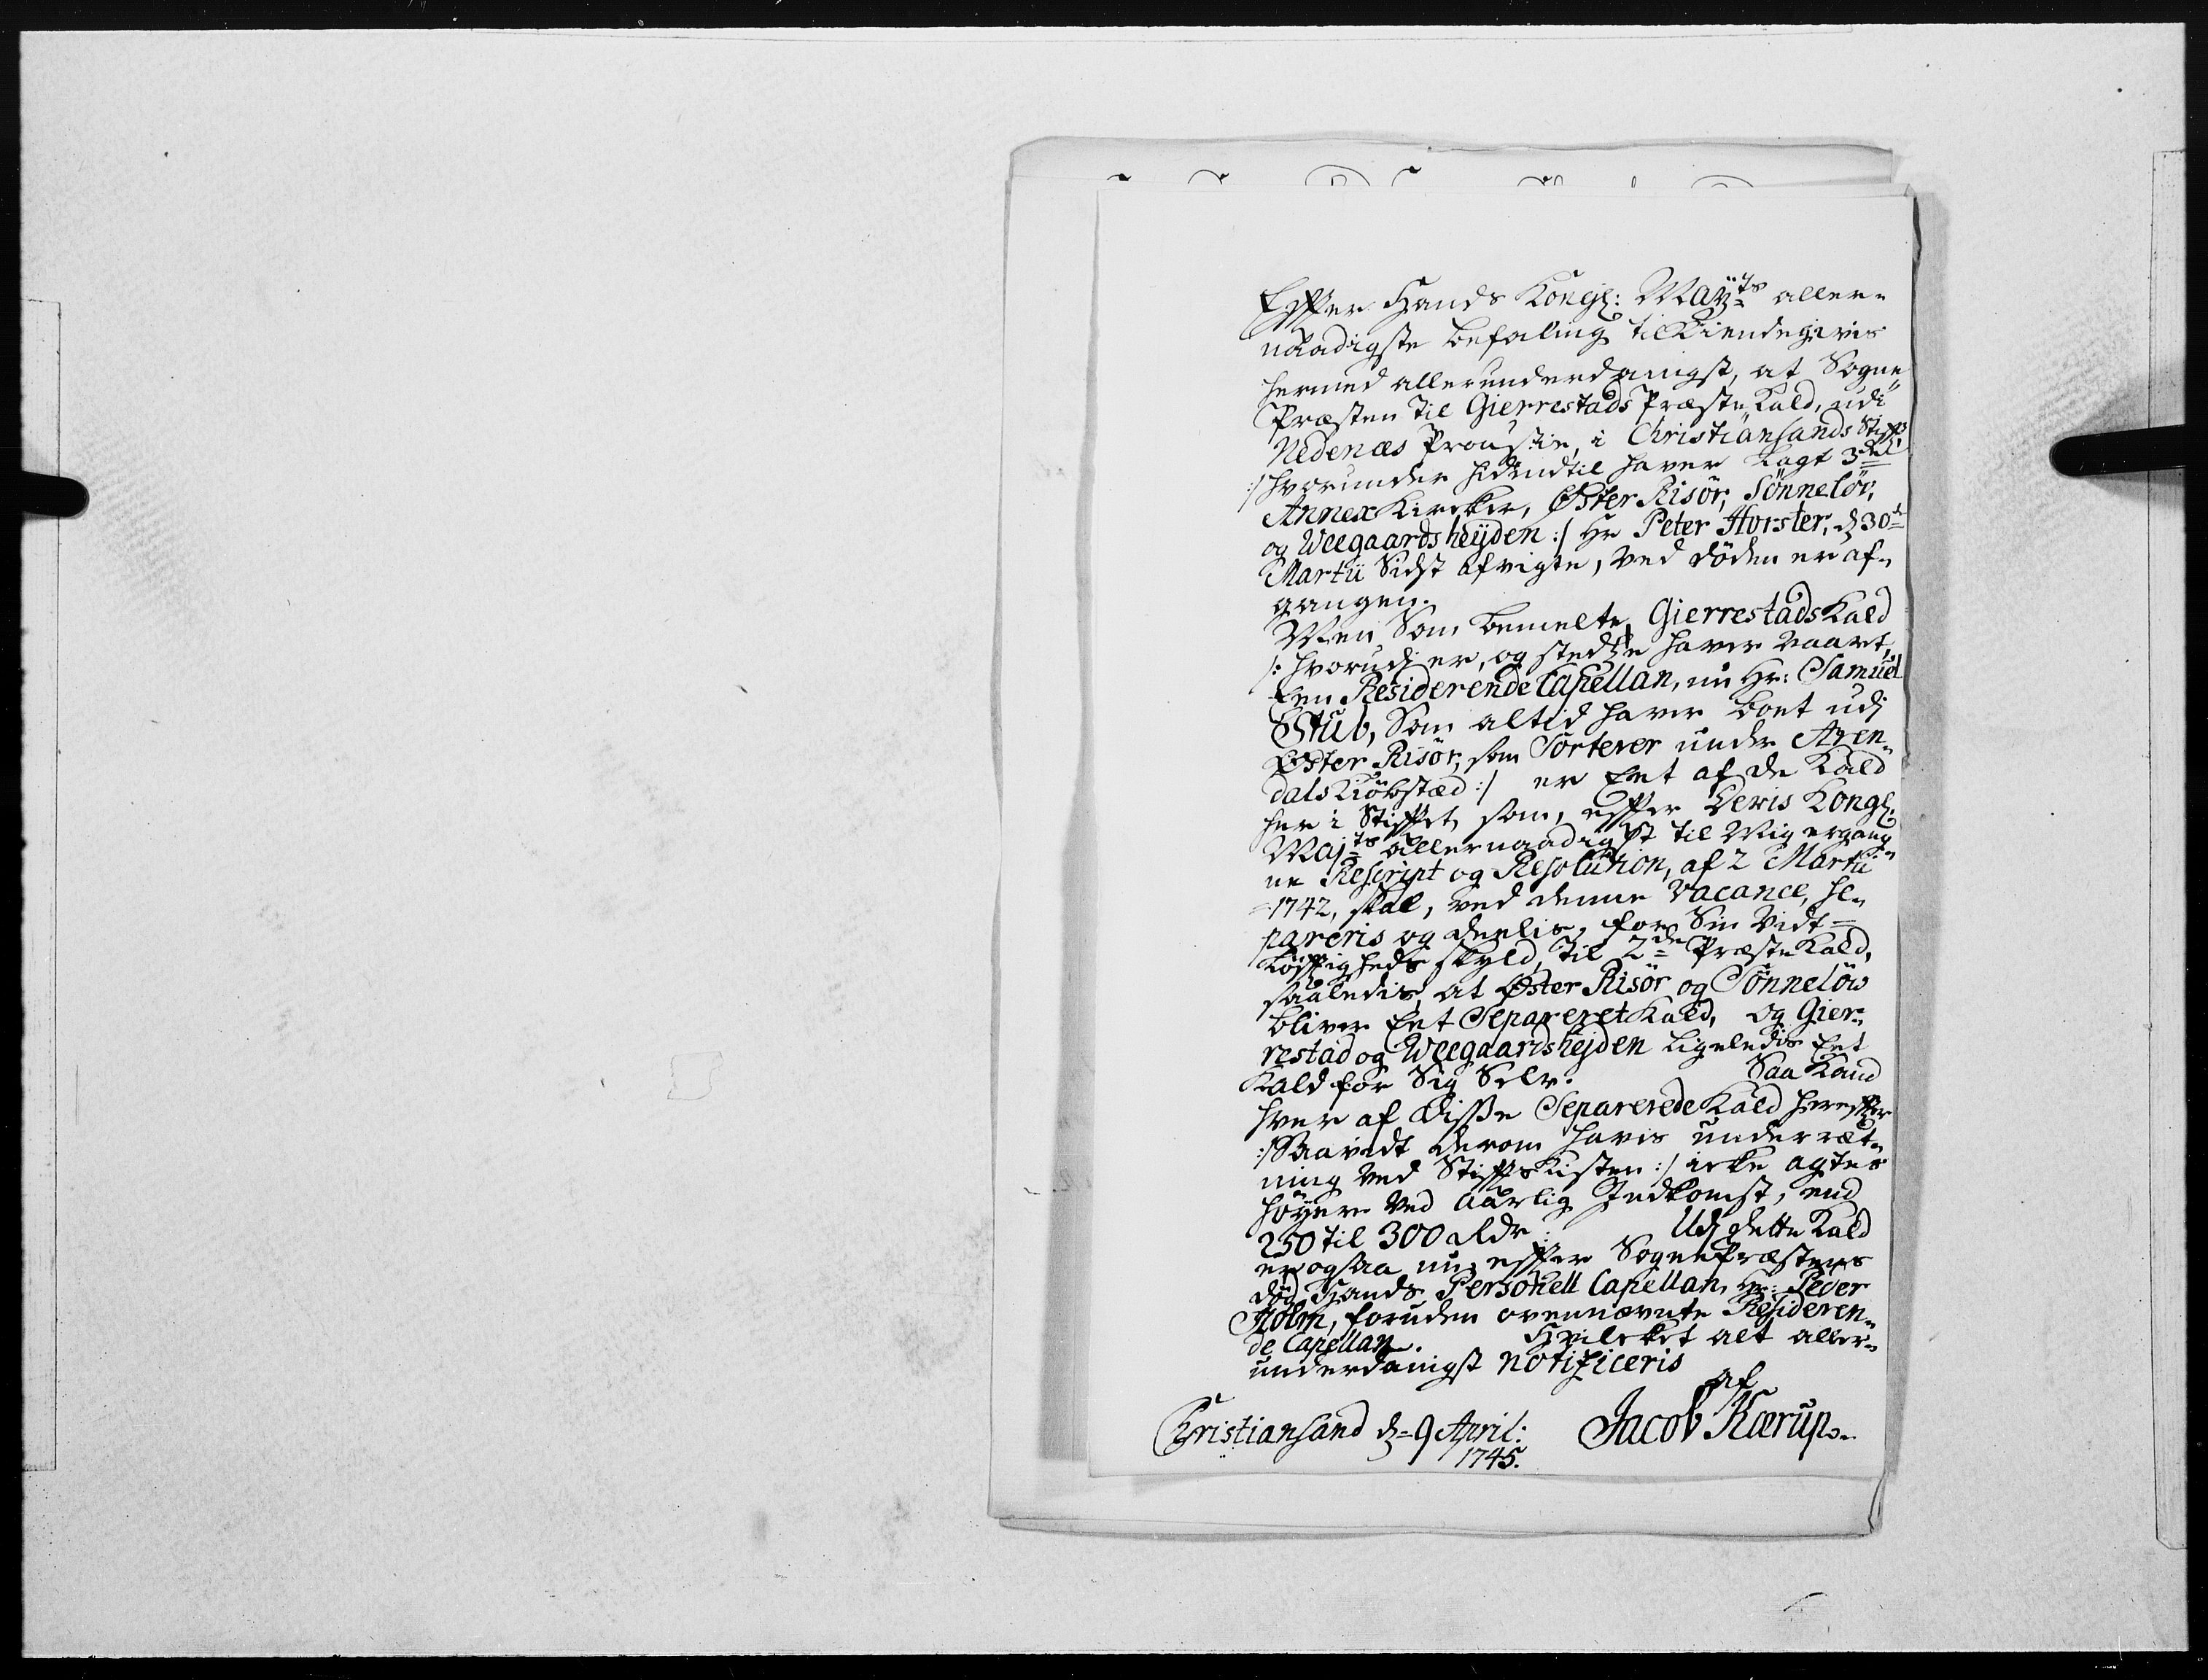 Effter Hands Kongl: Mayts aller¬
naadigste befaling tilkiendegivis
hermed allerunderdanigst, at Sogne
Præsten til Gierrestads Præste Kald, udi
Nedenæs Proustie, i Christiansands Stift
:/ hvorunder hidindtil haver lagt 3de
Annex Kircker, Øster Risör, Sönnelöv,
og Weegaardsheÿden :/ Hr Peter Horster, d 30te
Martii Sidst afvigte, ved döden er af¬
gangen.
Men Som bemelte Gierrestads Kald
/: hvorudj er, og stedse haver vaart,
Een Residerende Capellan, nu Hr: Samuel
Stub, Som altid haver boet udj
Øster Risör, som Sorterer under Aren¬
dals Kiöbstæd :/ er Eet af de Kald
her i Stiftet, som, effter Deris Kongl.
Majts allernaadigst til Mig ergang¬
ne Rescript og Resolution, af 2 Martii
1742, skal, ved denne Vacance, se¬
pareris og deelis, for Sin Vidt=
löfftigheds skyld, til 2de Præste Kald,
saaledis, at Øster Risör og Sönnelöw
bliver Eet Separeret Kald, og Gier¬
restad og Weegaardshejden ligeledis Eet
Kald for Sig Selv. Saa Kand
hver af disse Separerede Kald hereffter
:/ Saavidt derom havis underræt¬
ning ved Stiffts Kisten :/ icke agtes
höyere ved Aarlig Indkomst, end
250 til 300 Rdr: Udj dette Kald
er ogsaa nu, effter Sognepræstens
död, Hands Personell Capellan, Hr: Peder
Holm, foruden ovennævnte Resideren¬
de Capellan. Hvilcket alt aller¬
underdanigst notificeris
af
Christiansand d=9 April: Jacob Kærup.
1745.